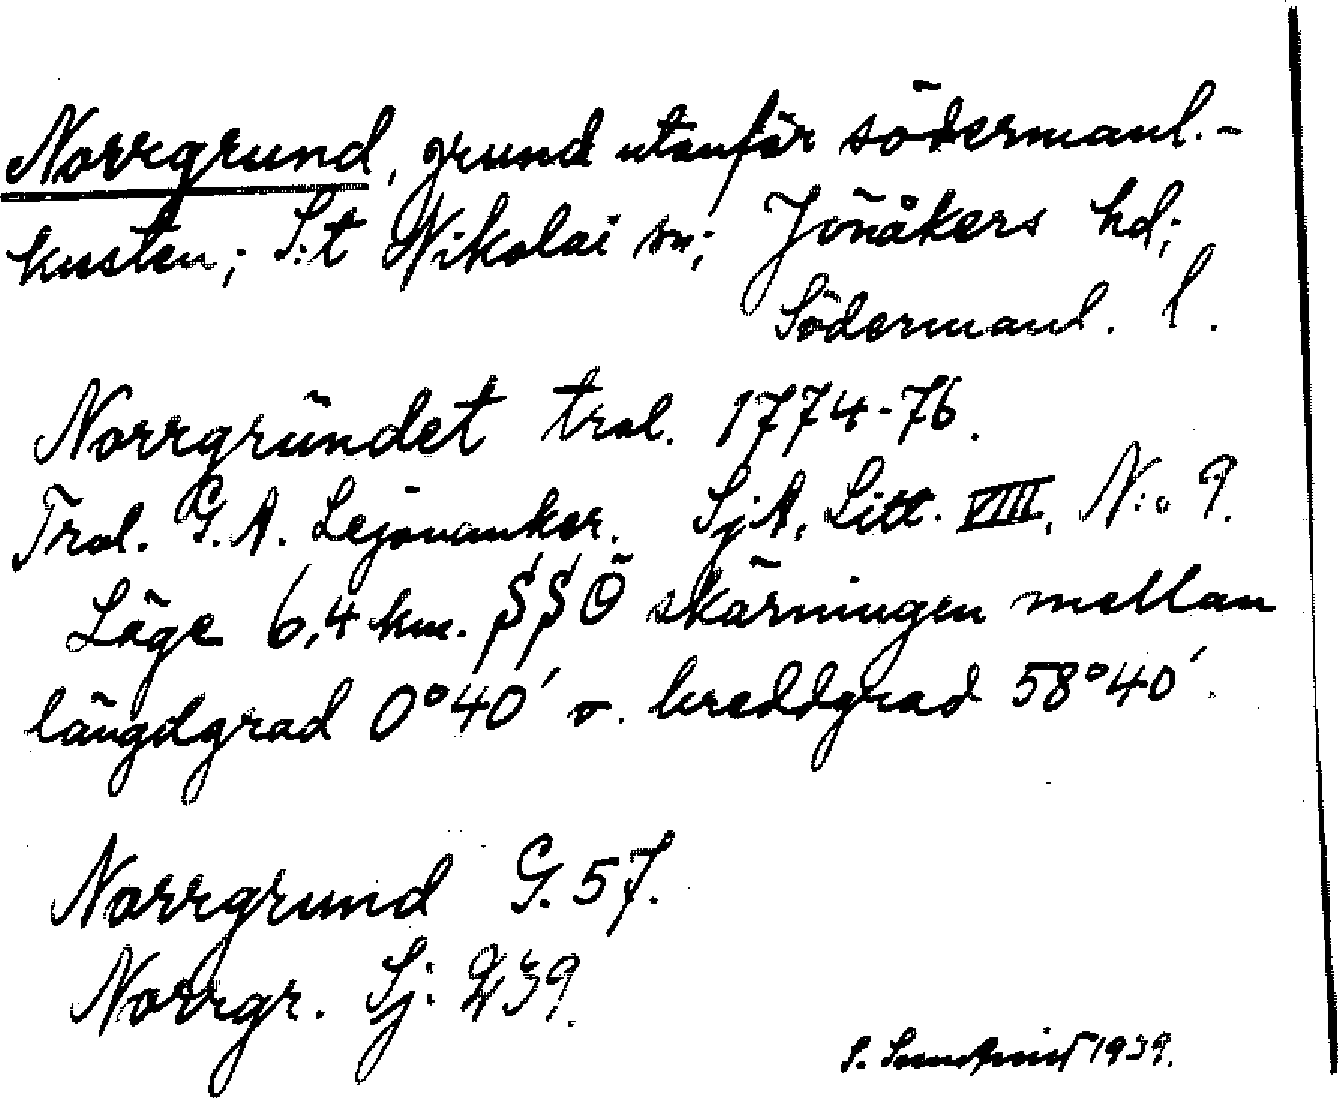 Norrgrund, grund utanför södermanl.-
kusten; S:t Nikolai sn; Jönåkers hd;
Södermanl. l.
Norrgrundet tral. 1774-76.
Tral. G. A. Lejonanker. SjA, Litt. VIII, N:o 9.
Läge 6,4 km. SSÖ skärningen mellan
längdgrad 0°40′ o. breddgrad 58°40′.
Norrgrund G. 57.
Norrgr. Sj: 239.
S. Sundqvist 1939.